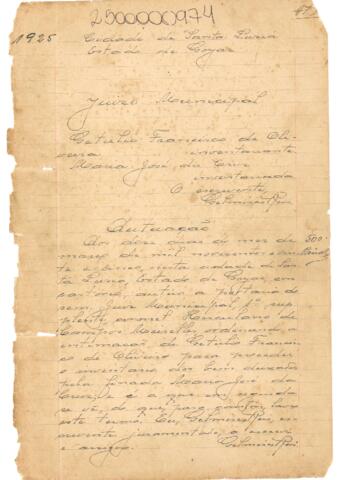 2500000974
47
1925
Cidade de Santa Luzia
Estado de Goyaz
Juizo Municipal
Getulio Francisco de Oli-
veira inventariante
Maria José da Cruz
inventariada
O escrevente
Autuação
Aos dois dias do mez de
março de mil novecentos e vin-
te e cinco, nesta cidade de San-
ta Luzia, Estado de Goyaz, em
cartorio, autuo a portaria do
Juiz Municipal 1º sup-
plente, coronel
de
Campos Meirelles, ordenando a
intimação de Getulio Francis-
co de Oliveira para proceder
o inventario dos bens deixados
pela finada Maria José da
Cruz, e é a que em seguida
se vê, do que, para constar, lavro
este termo. Eu,
es-
crevente juramentado, o escrevi
e assigno.